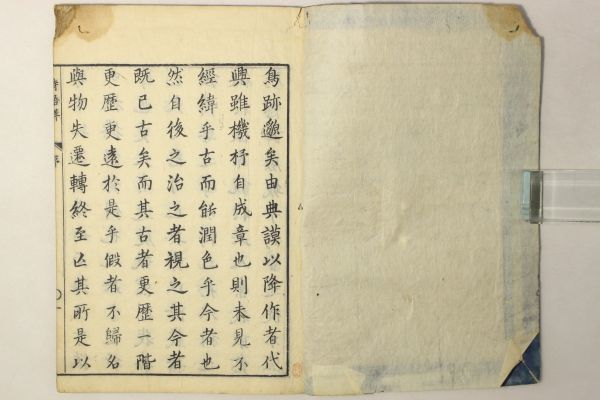 鳥跡邈矣由典謨以降作者代
興雖機杼自成章也則未見不
經緯乎古而能潤色乎今者也
然自後之治之者視之其今者
既已古矣而其古者更歷一階
更歷更遠於是乎假者不歸名
與物失遷轉終至亡其所是以
序